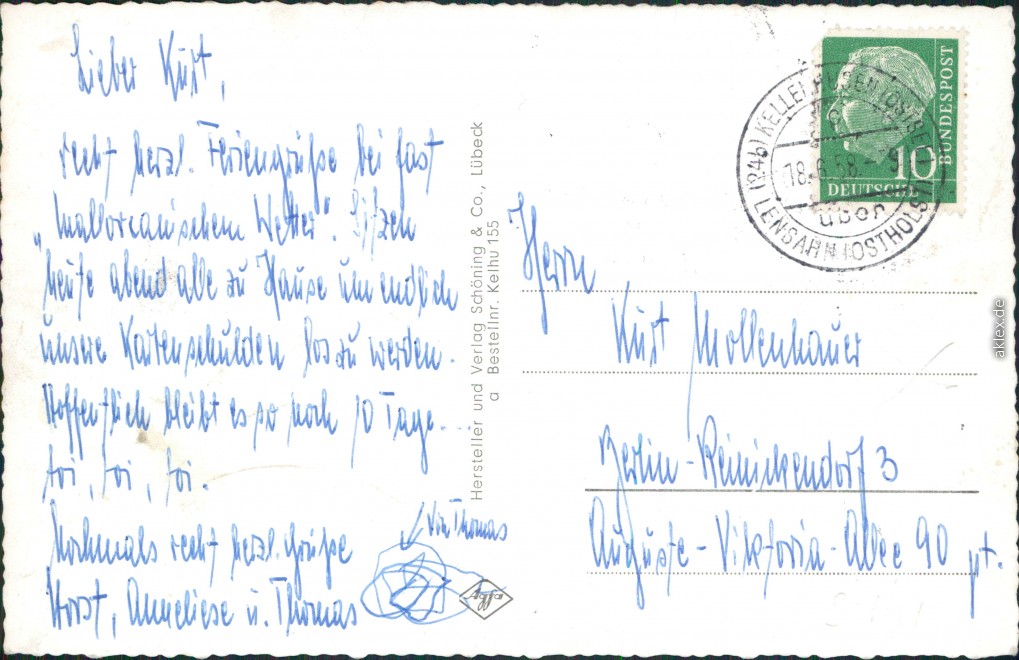 Lieber Kurt,
recht herzl. Feriengrüße bei fast
"mallorcanischem Wetter". Sitzen
heute abend alle zu Hause um endlich
unsere Kartenschulden los zu werden.
Hoffentlich bleibt es so noch 10 Tage...
toi, toi, toi.
Nochmals recht herzl. Grüße
Horst, Anneliese u. Thomas
Von Thomas
Agfa
Hersteller und Verlag Schöning & Co., Lübeck
a Bestellnr. Kelhu 155
(24b) KELLENHUSEN (OSTSEE)
18.6.58.-9
über
LENSAHN (OSTHOLST)
10
DEUTSCHE
BUNDESPOST
Herrn
Kurt Mollenhauer
Berlin-Reinickendorf 3
Auguste-Viktoria-Allee 90 pt.
aklex.de